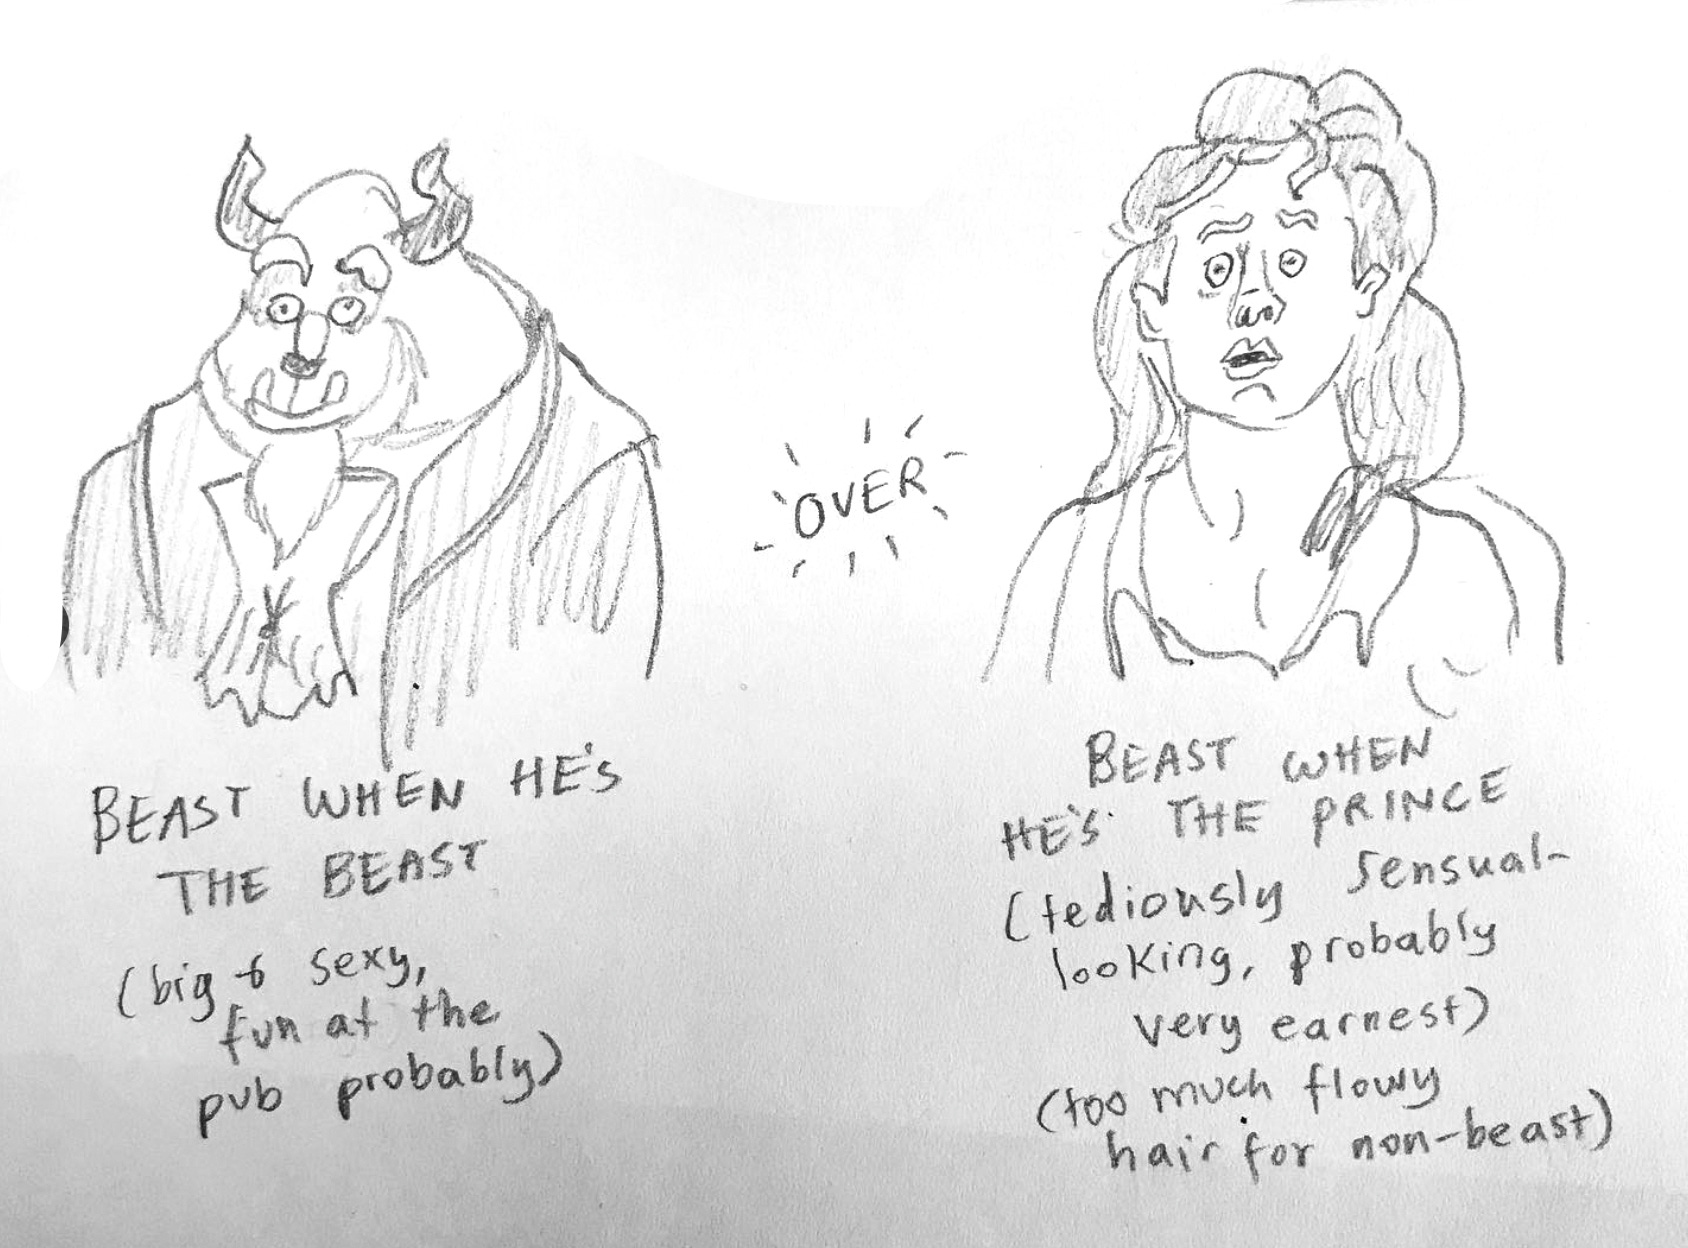 OVER
BEAST WHEN HE'S
THE BEAST
(big & sexy,
fun at the
pub probably)
BEAST WHEN
HE'S THE PRINCE
(tediously sensual-
looking, probably
very earnest)
(too much flowy
hair for non-beast)